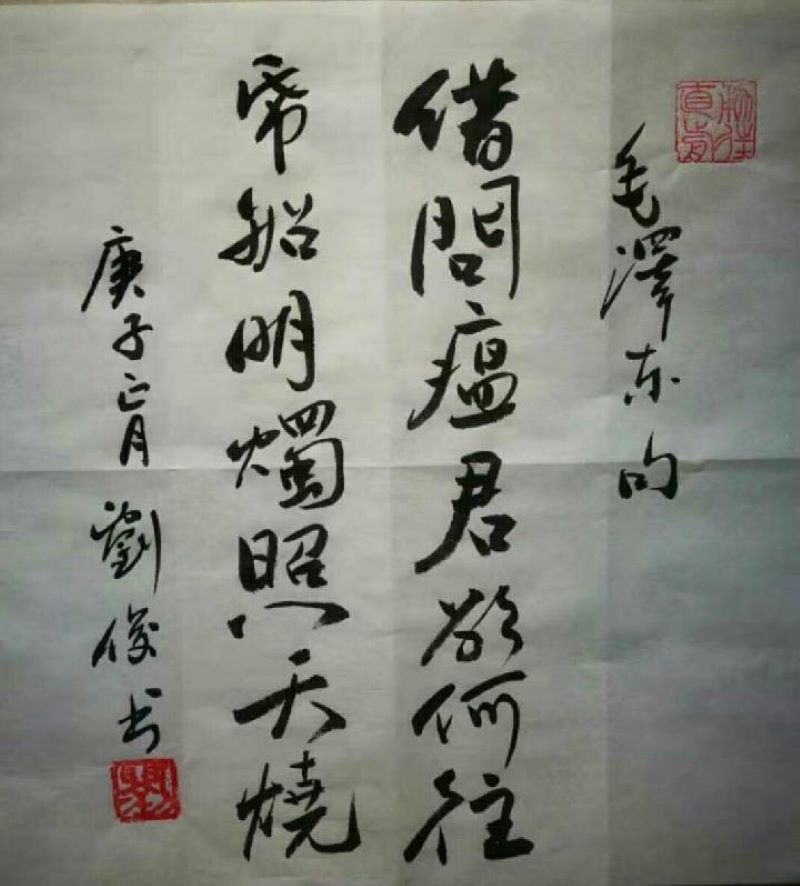 毛澤东句
借問瘟君欲何往
帋船明燭照天燒
庚子正月 劉俊书